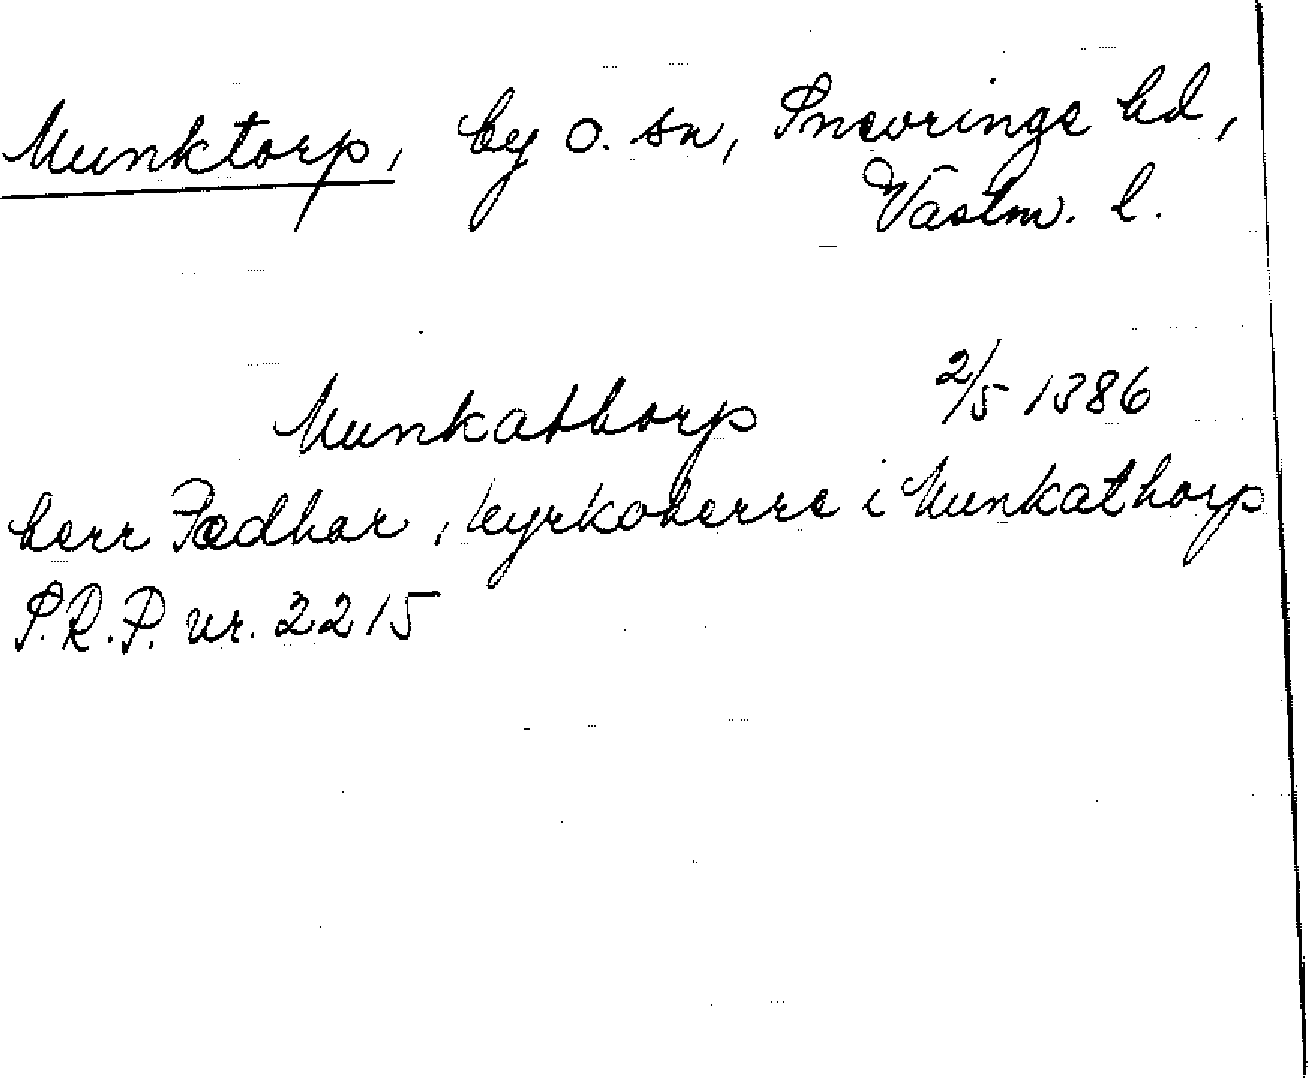 Munktorp, by o. sn, Snevringe hd,
Västm. l.
Munkathorp 2/5 1386
herr Pædhar, kyrkoherre i Munkathorp
S.R.P. nr. 2215